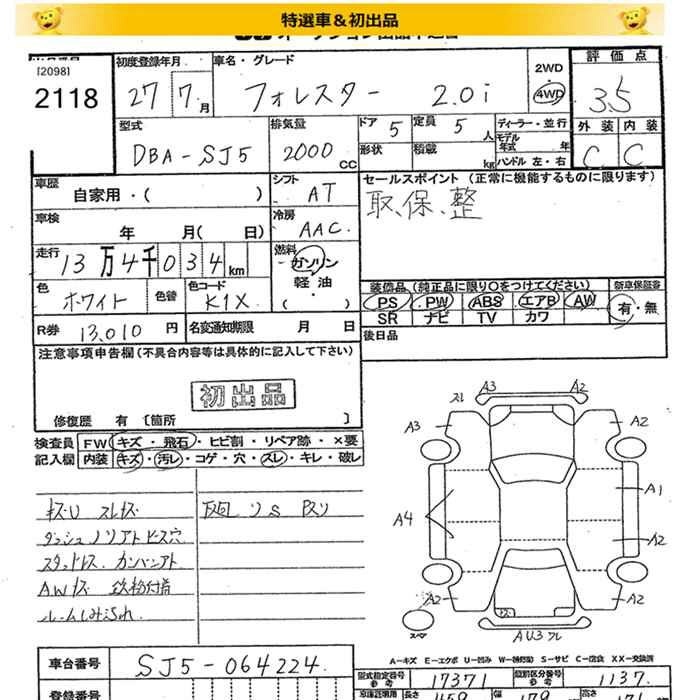 特選車＆初出品
[2098]
2118
初度登録年月
27 7月
車名・グレード
フォレスター 2.0i
2WD
・
4WD
評価点
3.5
型式
DBA-SJ5
排気量
2000cc
ドア 5
定員 5人
形状
積載 kg
ディーラー・並行
モデル年式 年
ハンドル 左・右
外装 内装
C C
車歴
自家用・( )
シフト
AT
セールスポイント (正常に機能するものに限ります)
取、保、整
車検
年 月( 日)
冷房
AAC
走行
13万4千034km
燃料
ガソリン
軽油
( ・ )
色
ホワイト
色替
色コード
K1X
装備品 (純正品に限り○をつけてください) 新車保証書
PS PW ABS エアB AW
有・無
SR ナビ TV カワ
R券 13,010円
名変通知期限 月 日
後日品
注意事項申告欄 (不具合内容等は具体的に記入して下さい)
初出品
修復歴 有 〔箇所 〕
検査員 FW キズ・飛石・ヒビ割・リペア跡・×要
記入欄 内装 キズ・汚レ・コゲ・穴・スレ・キレ・破レ
A3 A2
A3 A2
A4 A1
A2
A2 A2
スペア
AU3
A-キズ E-エクボ U-凹み W-補修跡 S-サビ C-腐食 XX-交換済
車台番号
SJ5-064224
型式指定番号 参考 17371
類別区分番号 参考 1137
登録番号
長さ 459
179
171